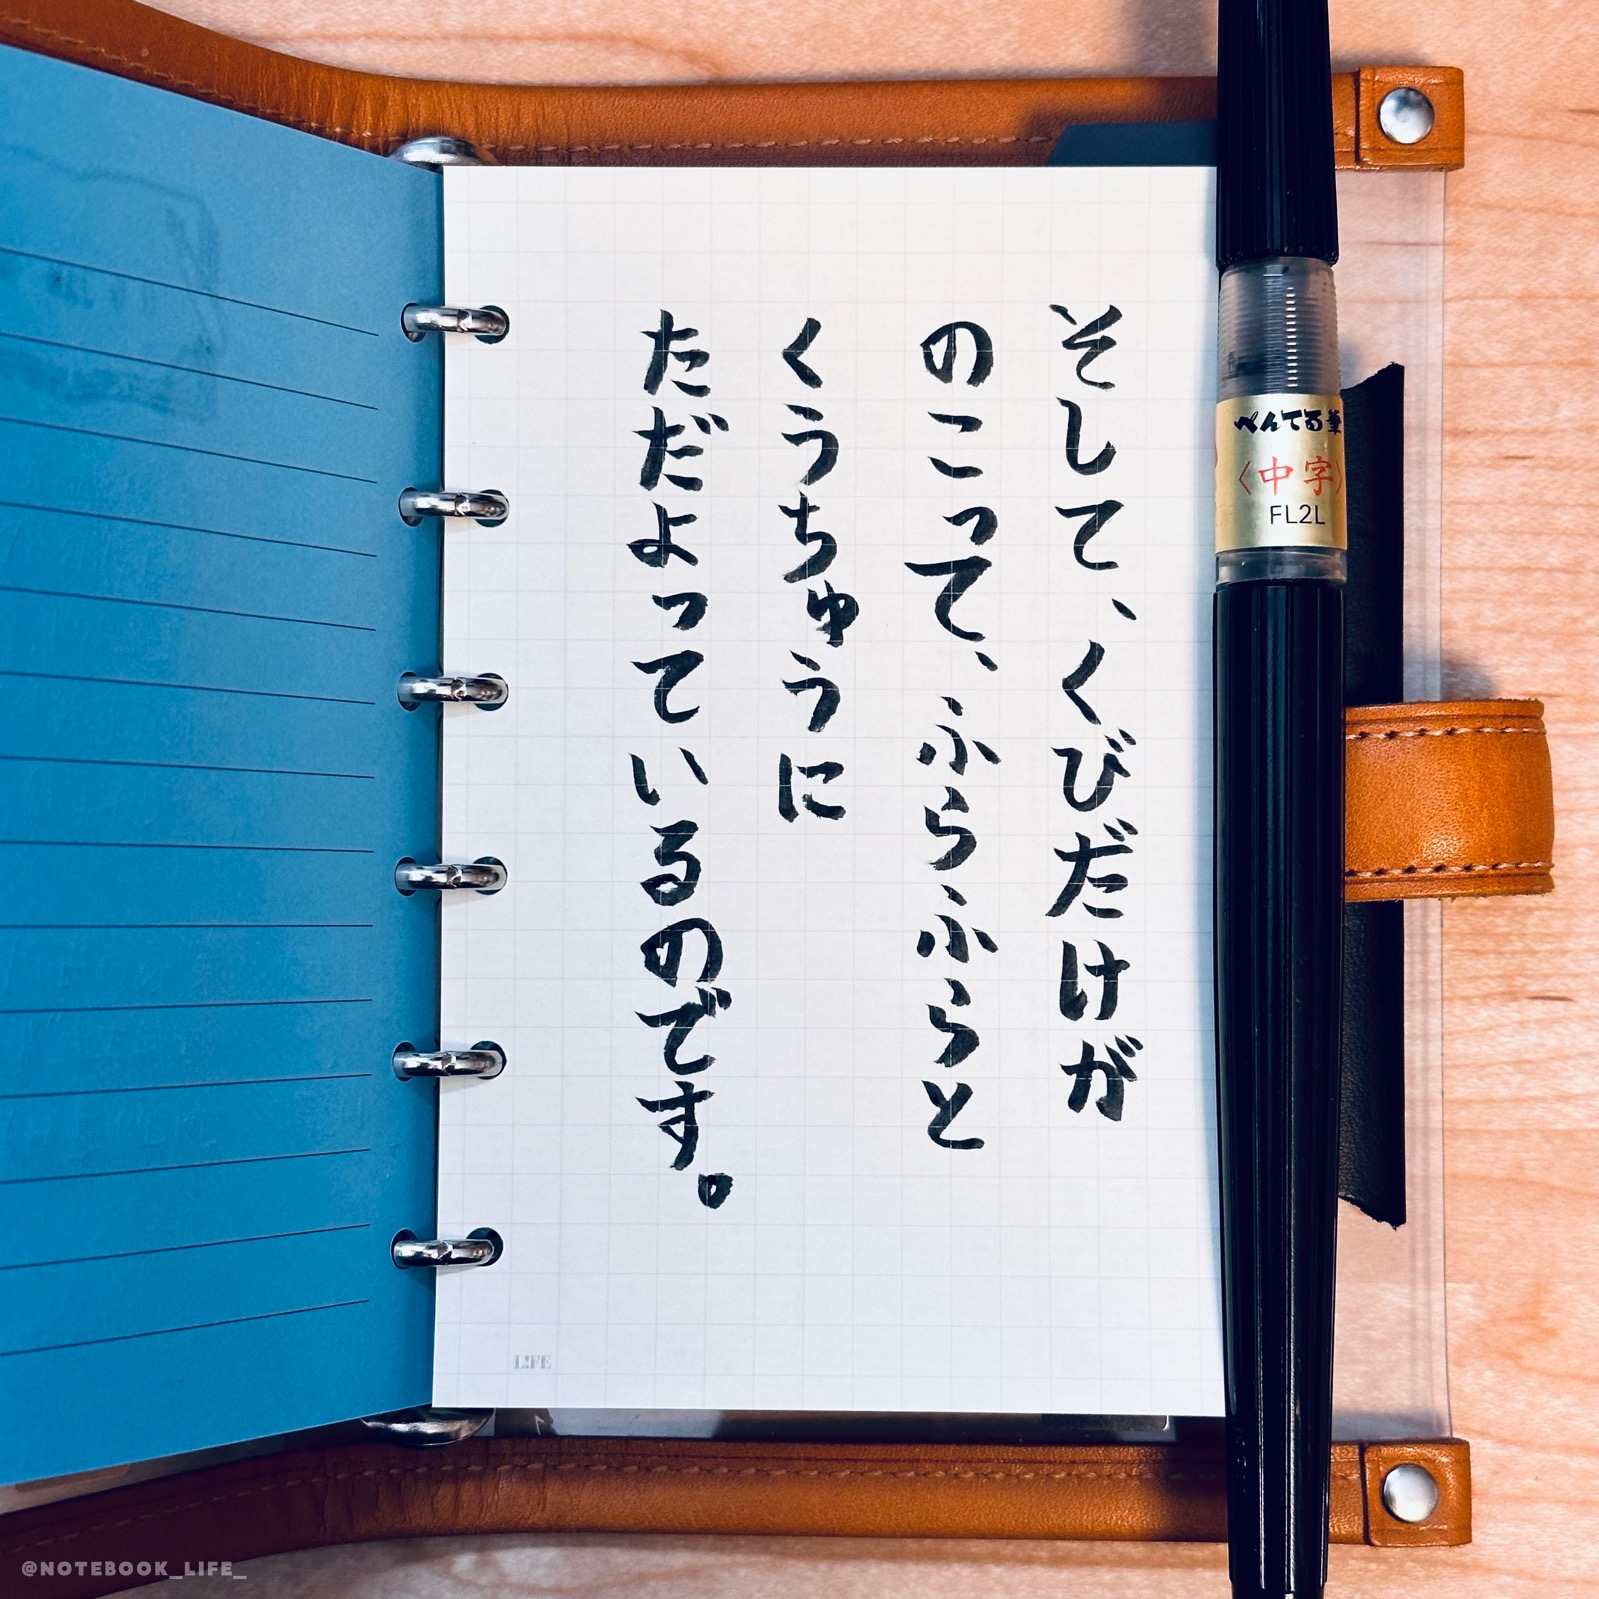 そして、くびだけが
のこって、ふらふらと
くうちゅうに
ただよっているのです。
ぺんてる筆
〈中字〉
FL2L
L!FE
@NOTEBOOK_LIFE_